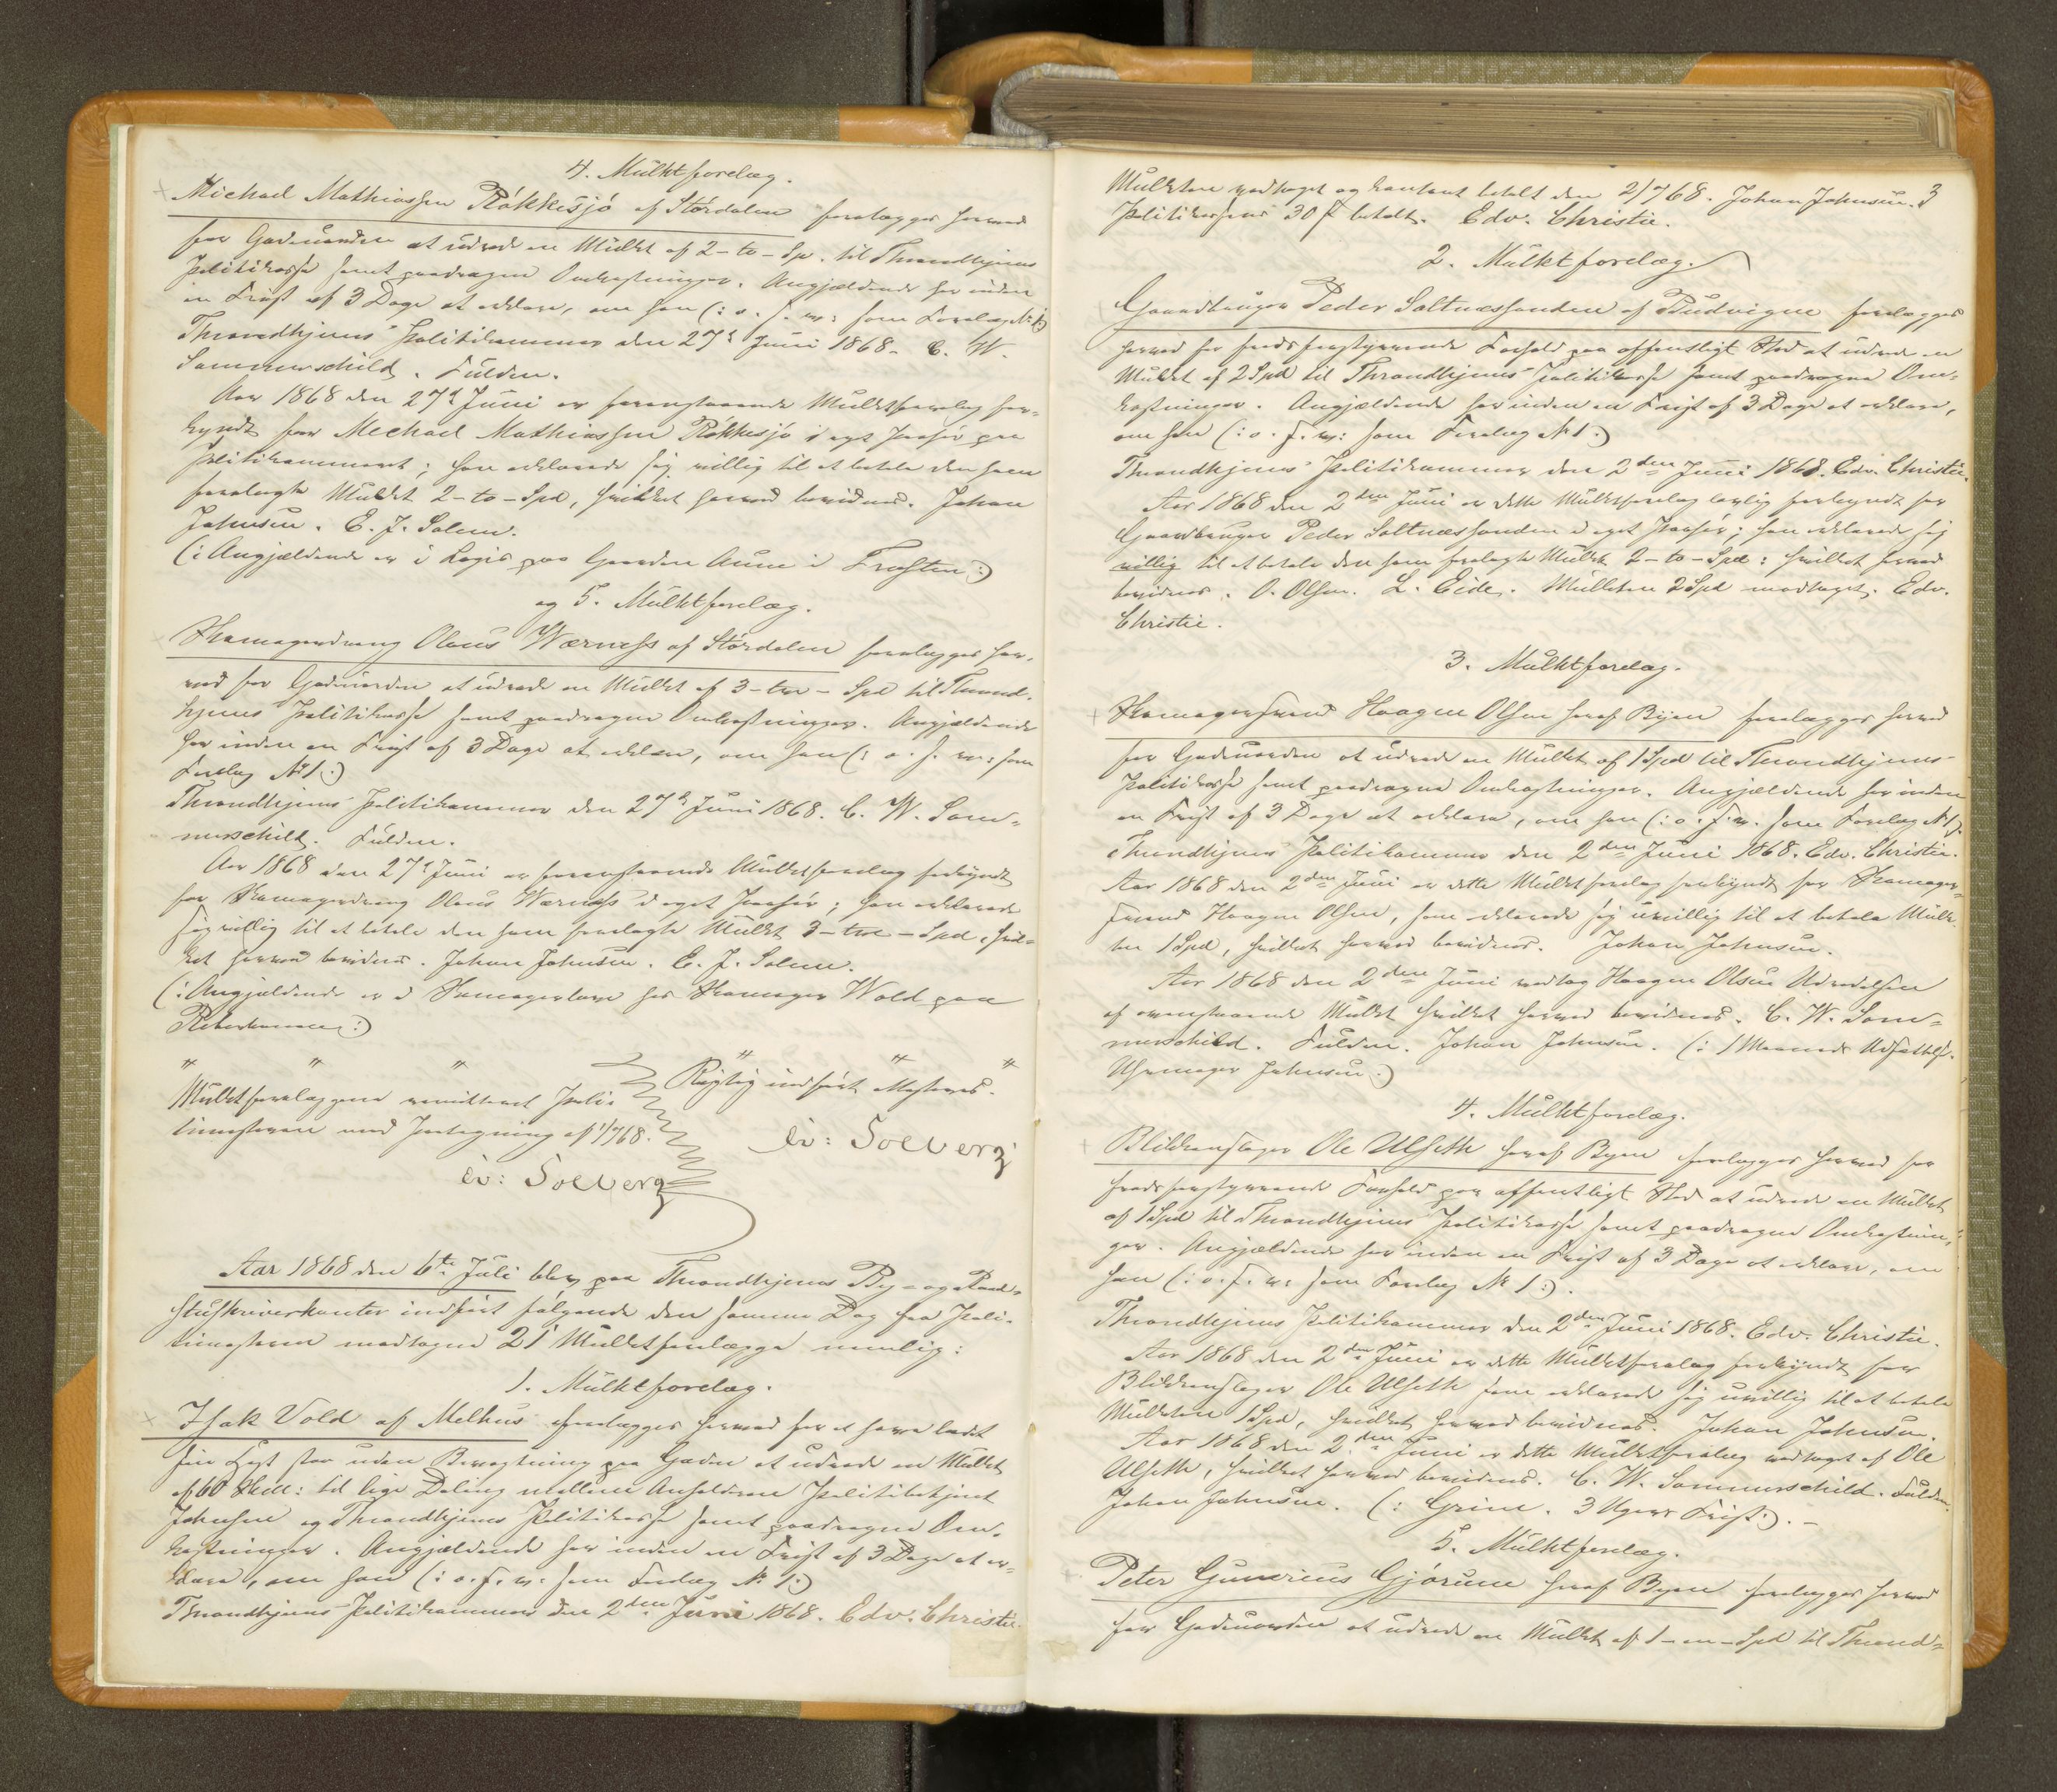 4. Mulktforelæg.
Michael Mathiassen Røkkesjø af Størdalen forelægges herved
for Gadeuorden at udrede en Mulkt af 2 - to - Sp. til Throndhjems
Politikasse samt paadragne Omkostninger. Angjældende har inden
en Frist af 3 Dage at erklære, om han (: o. s. v: som Forelæg № 1:)
Throndhjems Politikammer den 27de Juni 1868. C. W.
Sommerschild. Fuldm.
Aar 1868 den 27de Juni er foranstaaende Mulktforelæg for-
kyndt for Michael Mathiassen Røkkesjø i eget Paahør paa
Politikammeret; han erklærede sig villig til at betale den ham
forelagte Mulkt 2 - to - Spd, hvilket herved bevidnes. Johan
Johnsen. E. J. Solem.
(: Angjældende er i Logis paa Gaarden Aune i Frosten :)
og 5. Mulktforelæg.
Skomagerdreng Olaus Værness af Størdalen forelægges her-
ved for Gadeuorden at udrede en Mulkt af 3 - tre - Spd til Thrond-
hjems Politikasse samt paadragne Omkostninger. Angjældende
har inden en Frist af 3 Dage at erklære, om han (: o. s. v: som
Forelæg № 1:)
Throndhjems Politikammer den 27de Juni 1868. C. W. Som-
merschild. Fuldm.
Aar 1868 den 27de Juni er foranstaaende Mulktforelæg forkyndt
for Skomagerdreng Olaus Værness i eget Paahør; han erklærede
sig villig til at betale den ham forelagte Mulkt 3 - tre - Spd, hvil-
ket herved bevidnes. Johan Johnsen. E. J. Solem.
(: Angjældende er i Skomagerlære hos Skomager Wold paa
:)
" " " " " "
Rigtig indført attesteres.
Mulktforelæggene remitteret Poli-
timesteren med Paategning af 1/7 68.
ev: Solberg
ev: Solberg
Aar 1868 den 6te Juli blev paa Throndhjems By- og Raad-
stuskriverkontor indført følgende den samme Dag fra Poli-
timesteren modtagne 21 Mulktforelægge nemlig:
1. Mulktforelæg.
Isak Vold af Melhus forelægges herved for at have ladet
sin Hest staa uden Bevogtning paa Gaden at udrede en Mulkt
af 60 Skill: til lige Deling mellem Anholderen Politibetjent
Johnsen og Throndhjems Politikasse samt paadragne Om-
kostninger. Angjældende har inden en Frist af 3 Dage at er-
klære, om han (: o. s. v: som Forelæg № 1:)
Throndhjems Politikammer den 2den Juni 1868. Edv. Christie.
3
Mulkten vedtaget og kontant betalt den 2/7 68. Johan Johnsen.
Politikassens 30 s betalt. Edv. Christie.
2. Mulktforelæg.
Gaardbruger Peder Saltnessanden af Budvigen forelægges
herved for fredsforstyrrende Forhold paa offentligt Sted at udrede en
Mulkt af 2 Spd til Throndhjems Politikasse samt paadragne Om-
kostninger. Angjældende har inden en Frist af 3 Dage at erklære,
om han (: o. s. v: som Forelæg № 1:)
Throndhjems Politikammer den 2den Juni 1868. Edv. Christie.
Aar 1868 den 2den Juni er dette Mulktforelæg lovlig forkyndt for
Gaardbruger Peder Saltnessanden i eget Paahør; han erklærede sig
villig til at betale den ham forelagte Mulkt 2 - to - Spd: hvilket herved
bevidnes. O. Olsen. L. Eide. Mulkten 2 Spd modtaget. Edv.
Christie.
3. Mulktforelæg.
Skomagersvend Haagen Olsen heraf Byen forelægges herved
for Gadeuorden at udrede en Mulkt af 1 Spd til Throndhjems
Politikasse samt paadragne Omkostninger. Angjældende har inden
en Frist af 3 Dage at erklære, om han (: o. s. v. som Forelæg № 1:).
Throndhjems Politikammer den 2den Juni 1868. Edv. Christie.
Aar 1868 den 2den Juni er dette Mulktforelæg forkyndt for Skomager-
svend Haagen Olsen, som erklærede sig uvillig til at betale Mulk-
ten 1 Spd, hvilket herved bevidnes. Johan Johnsen.
Aar 1868 den 2den Juni vedtog Haagen Olsen Udredelsen
af ovenstaaende Mulkt hvilket herved bevidnes. C. W. Som-
merschild. Fuldm. Johan Johnsen. (: 1 Maaneds Udsættelse.
Uhrmager Johnsen:)
4. Mulktforelæg.
Blikkenslager Ole Ulseth heraf Byen forelægges herved for
fredsforstyrrende Forhold paa offentligt Sted at udrede en Mulkt
af 1 Spd til Throndhjems Politikasse samt paadragne Omkostnin-
ger. Angjældende har inden en Frist af 3 Dage at erklære, om
han (: o. s. v: som Forelæg № 1:).
Throndhjems Politikammer den 2den Juni 1868. Edv. Christie.
Aar 1868 den 2den Juni er dette Mulktforelæg forkyndt for
Blikkenslager Ole Ulseth som erklærede sig uvillig til at betale
Mulkten 1 Spd, hvilket herved bevidnes. Johan Johnsen.
Aar 1868 den 2den Juni er dette Mulktforelæg vedtaget af Ole
Ulseth, hvilket herved bevidnes. C. W. Sommerschild. Fuldm.
Johan Johnsen. (: Grim. 3 Ugers Frist:). -
5. Mulktforelæg.
Peter Gunerius Gjørum heraf Byen forelægges herved
for Gadeuorden at udrede en Mulkt af 1 - en - Spd til Thrond-